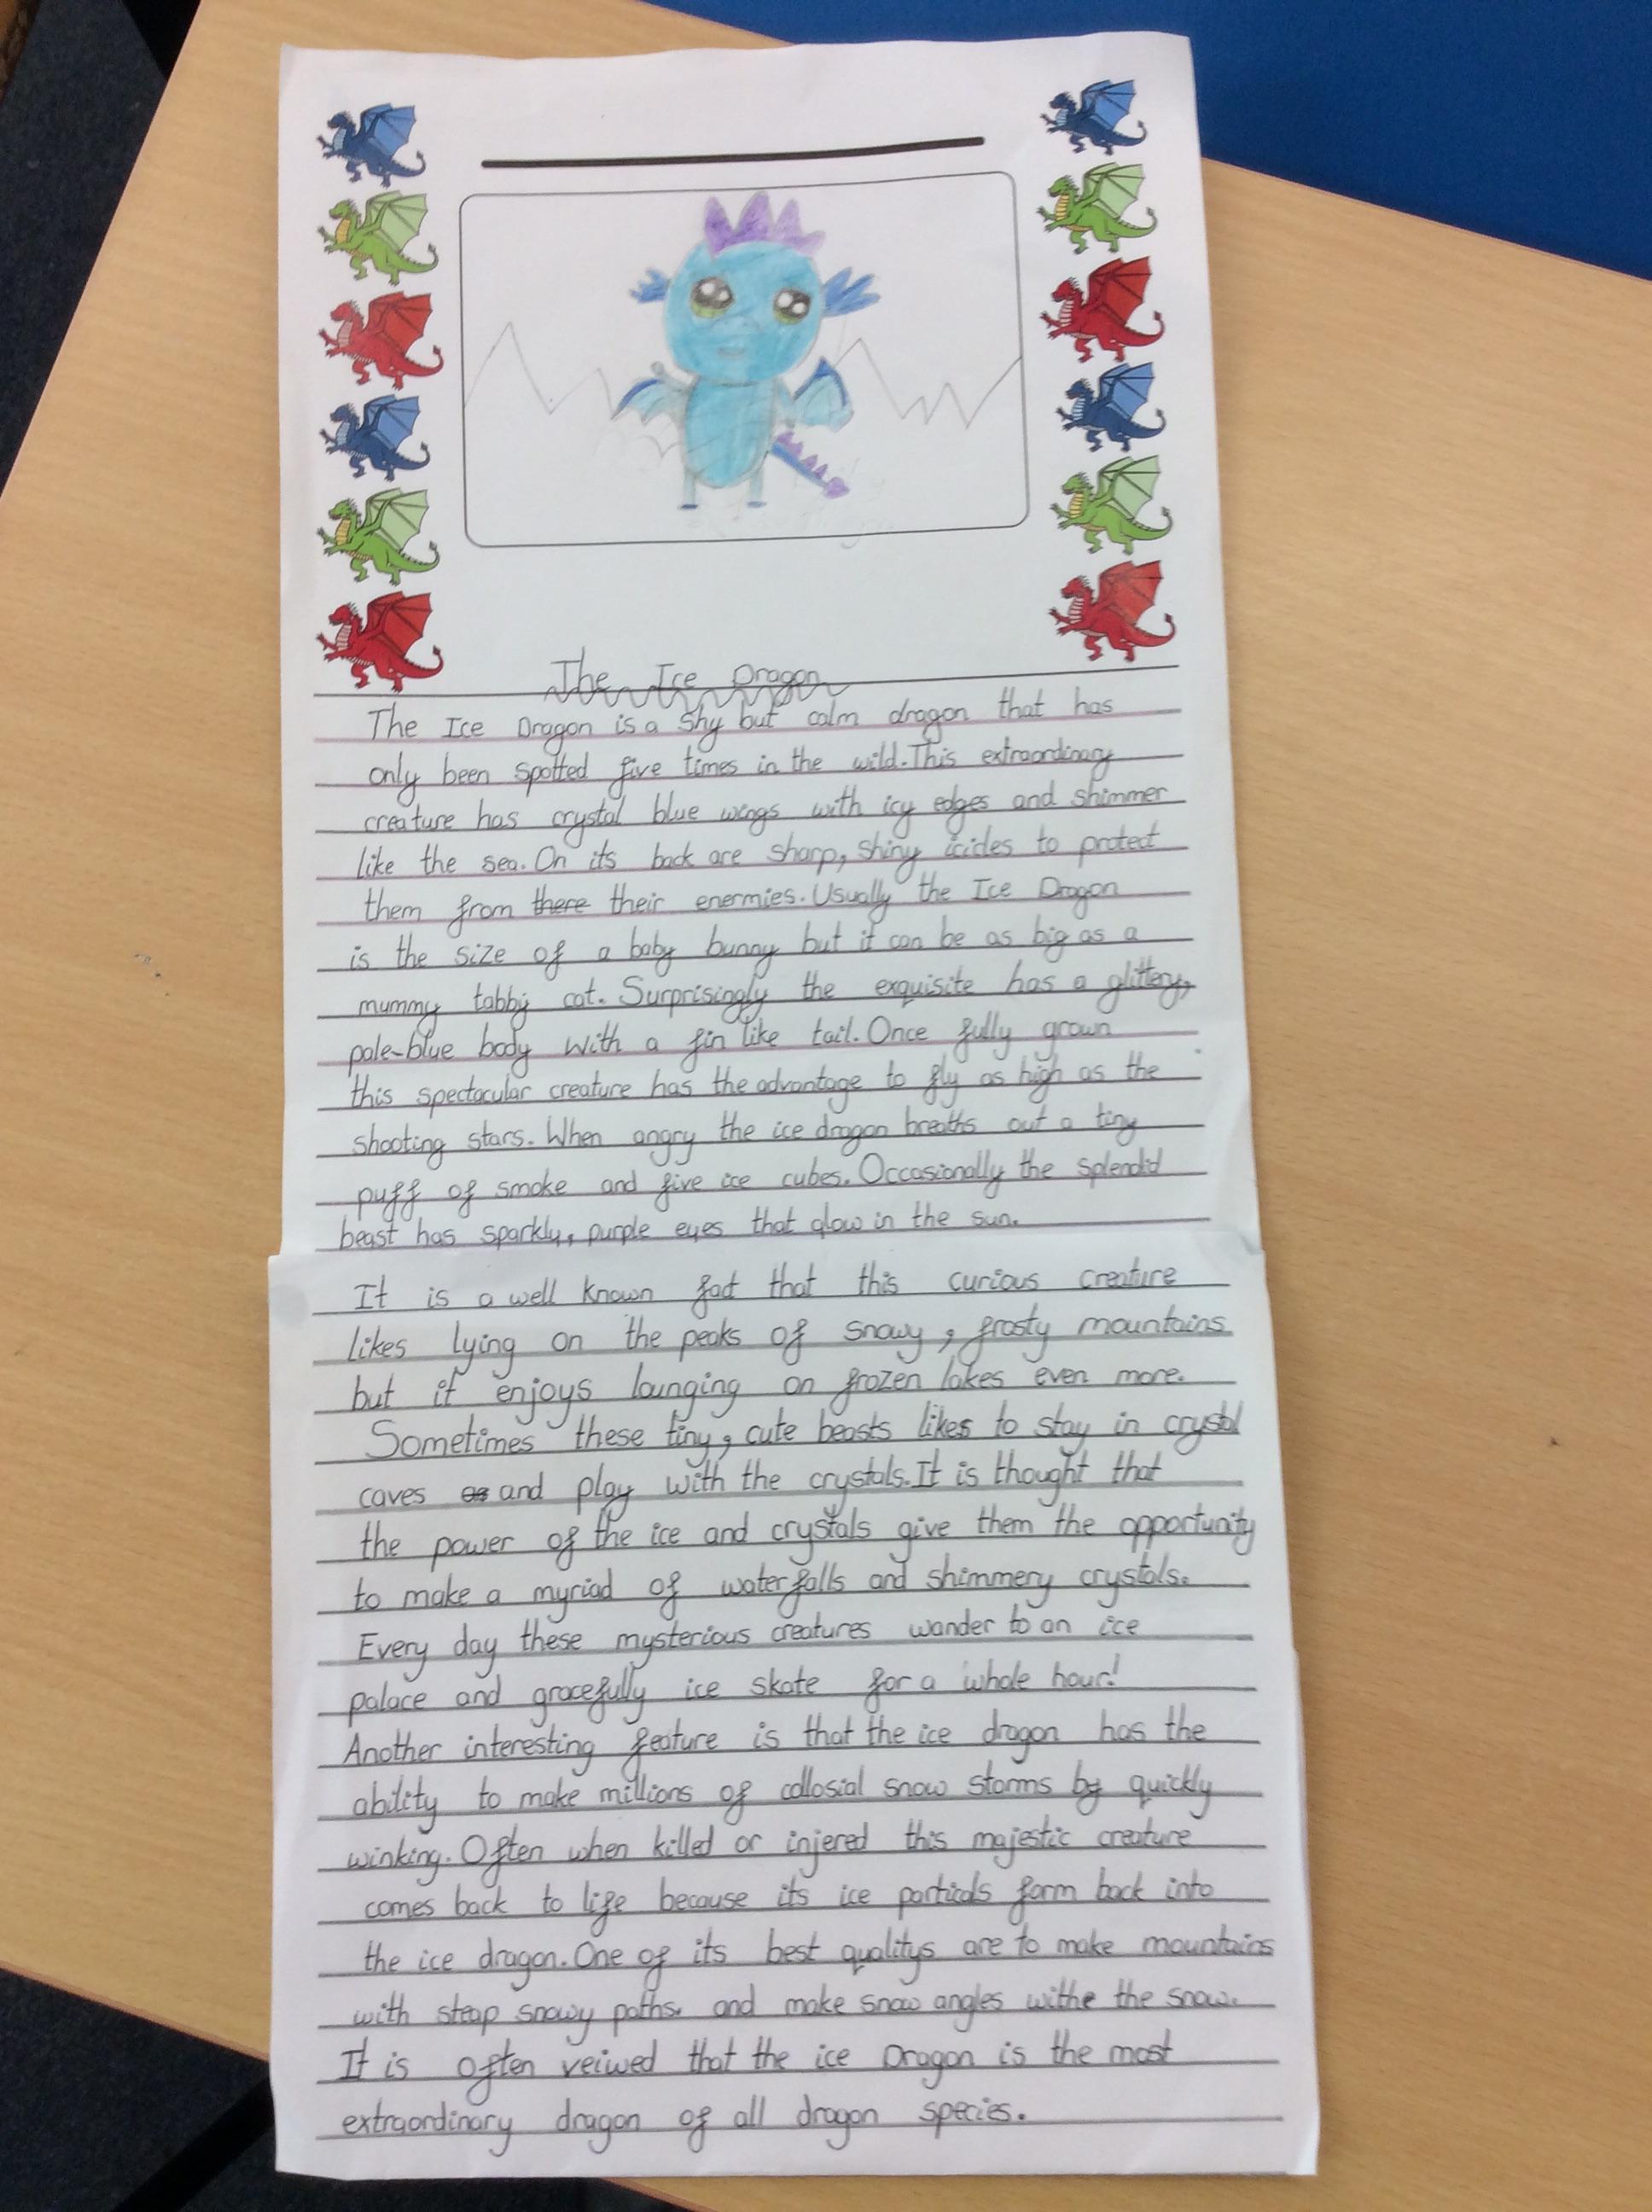 The Ice Dragon
The Ice Dragon is a shy but calm dragon that has
only been spotted five times in the wild. This extraordinary
creature has crystal blue wings with icy edges and shimmer
like the sea. On its back are sharp, shiny icicles to protect
them from there their enermies. Usually the Ice Dragon
is the size of a baby bunny but it can be as big as a
mummy tabby cat. Surprisingly the exquisite has a glittery,
pale-blue body with a fin like tail. Once fully grown
this spectacular creature has the advantage to fly as high as the
shooting stars. When angry the ice dragon breaths out a tiny
puff of smoke and five ice cubes. Occasionally the splendid
beast has sparkly, purple eyes that glow in the sun.
It is a well known fact that this curious creature
likes lying on the peaks of snowy, frosty mountains
but it enjoys lounging on frozen lakes even more.
Sometimes these tiny, cute beasts likes to stay in crystal
caves as and play with the crystals. It is thought that
the power of the ice and crystals give them the opportunity
to make a myriad of waterfalls and shimmery crystals.
Every day these mysterious creatures wander to an ice
palace and gracefully ice skate for a whole hour!
Another interesting feature is that the ice dragon has the
ability to make millions of collosial snow storms by quickly
winking. Often when killed or injered this majestic creature
comes back to life because its ice particals form back into
the ice dragon. One of its best qualitys are to make mountains
with steap snowy paths. and make snow angles withe the snow.
It is often veiwed that the ice Dragon is the most
extraordinary dragon of all dragon species.